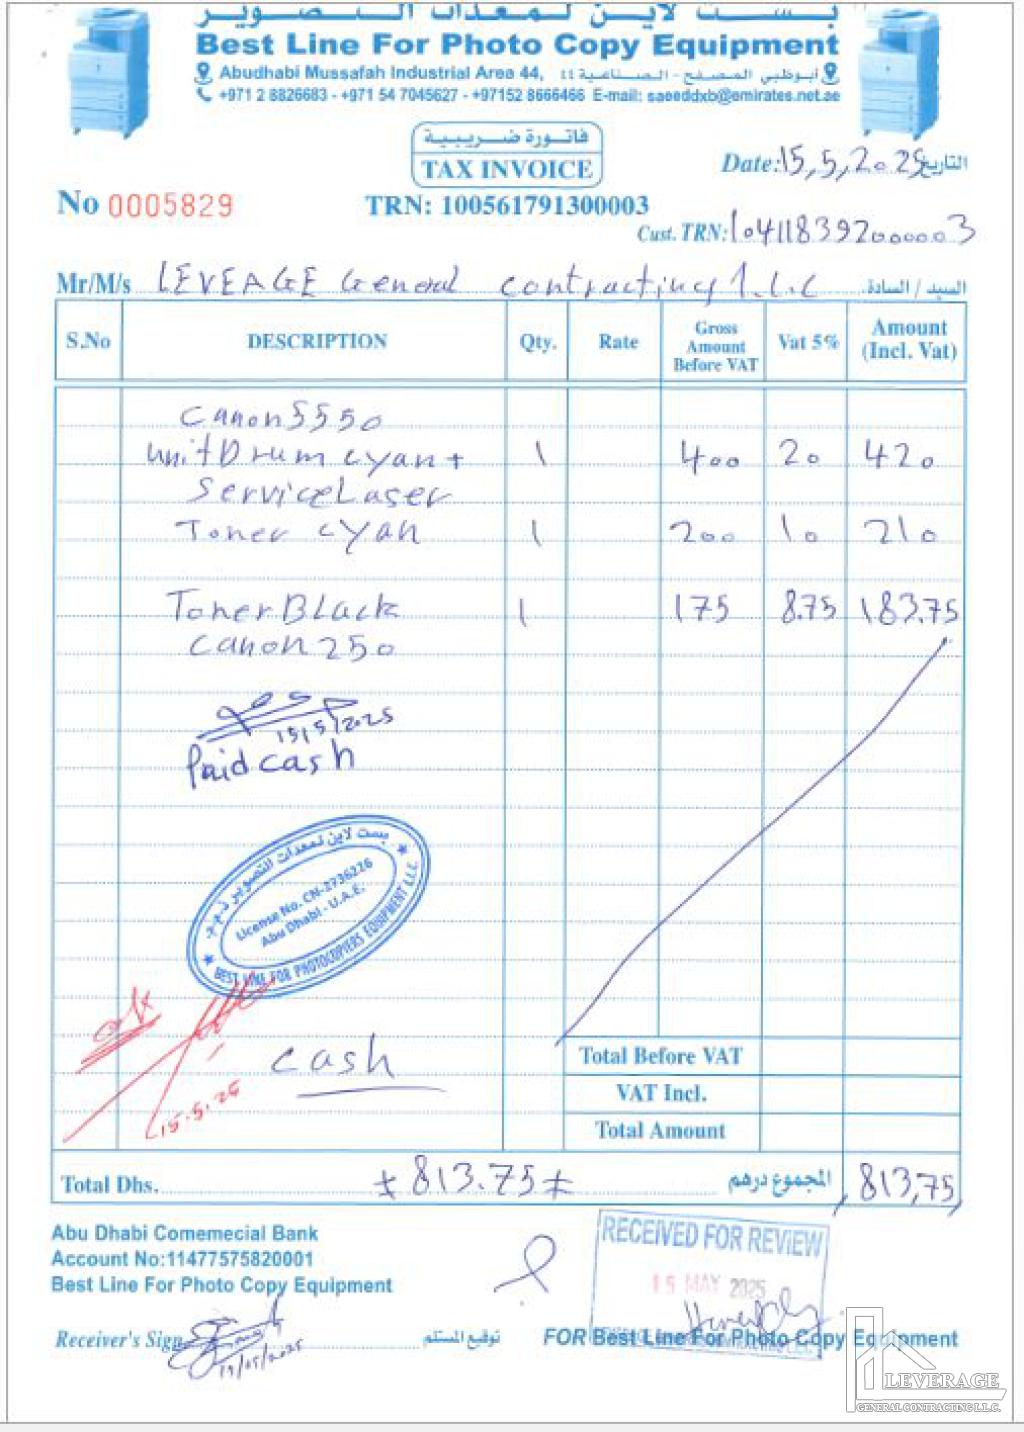 بست لاين لمعدات التصوير
Best Line For Photo Copy Equipment
Abudhabi Mussafah Industrial Area 44, أبوظبي المصفح - الصناعية ٤٤
+971 2 8826683 - +971 54 7045627 - +97152 8666466 E-mail: saeeddxb@emirates.net.ae
فاتورة ضريبية
TAX INVOICE
Date: 15,5,2025 التاريخ
No 0005829
TRN: 100561791300003
Cust. TRN: 104118392000003
Mr/M/s LEVEAGE General contracting l.l.c السيد / السادة
S.No DESCRIPTION Qty. Rate Gross Amount Before VAT Vat 5% Amount (Incl. Vat)
Canon 5550
Unit Drum cyan + 1 400 20 420
Service Laser
Toner cyan 1 200 10 210
Toner Black 1 175 8.75 183.75
Canon 250
15/5/2025
Paid cash
بست لاين لمعدات التصوير ذ.م.م
License No. CN-2736226
Abu Dhabi - U.A.E.
BEST LINE FOR PHOTOCOPIERS EQUIPMENT L.L.C.
15.5.25
Cash
Total Before VAT
VAT Incl.
Total Amount
Total Dhs. 813.75 المجموع درهم 813,75
Abu Dhabi Comemecial Bank
Account No:11477575820001
Best Line For Photo Copy Equipment
RECEIVED FOR REVIEW
15 MAY 2025
Receiver's Sign توقيع المستلم FOR Best Line For Photo Copy Equipment
19/05/2025
LEVERAGE
GENERAL CONTRACTING L.L.C.